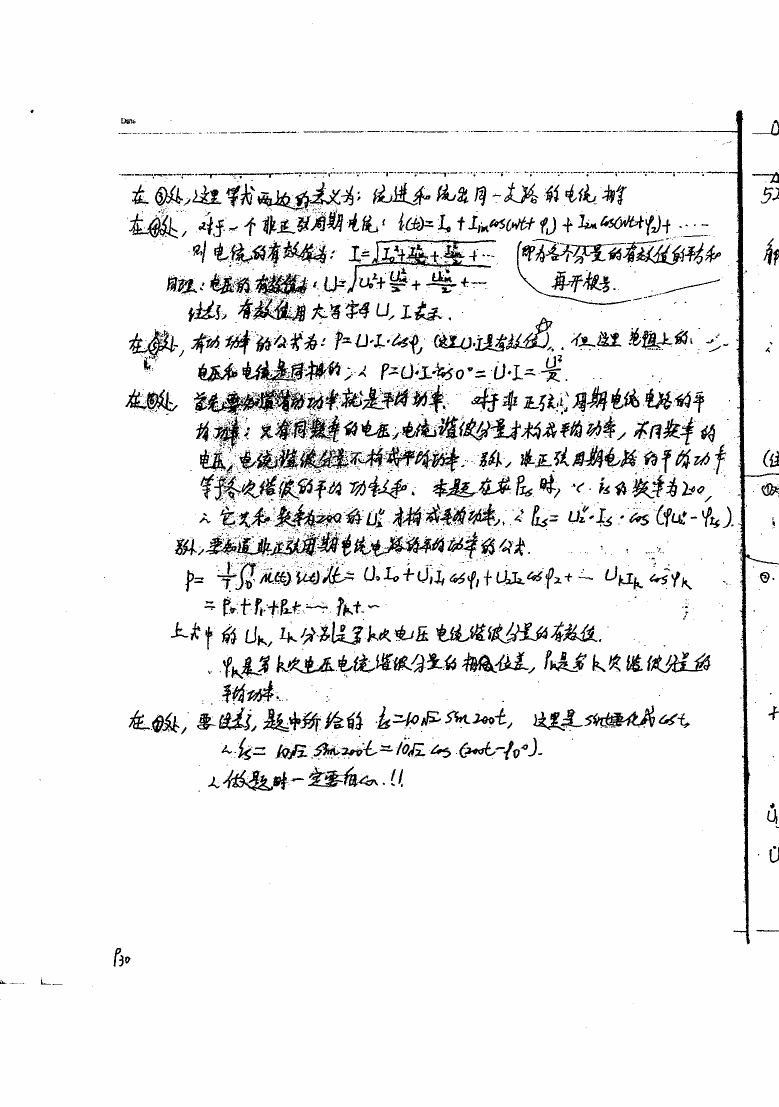 Date
在③处,这里等式两边的意义为: 流进和流出同一支路的电流相等
在④处, 对于一个非正弦周期电流: i(t)= I₀ + I₁ₘcos(ωt+φ₁) + I₂ₘcos(ωt+φ₂)+ ……
则电流的有效值为: I=√(I₀²+I₁ₘ²/2+I₂ₘ²/2+…
(即为各个分量的有效值的平方和
再开根号.
同理: 电压的有效值为: U=√(U₀²+U₁ₘ²/2+U₂ₘ²/2+…
注意, 有效值用大写字母U, I表示.
在⑤处, 有功功率的公式为: P=U·I·cosφ, (这里U·I是有效值) 但这里 电阻上的
电压和电流是同相的, ∴ P=U·I·cos0°= U·I= U²/R
在⑥处, 首先要知道有功功率就是平均功率. 对于非正弦周期电流电路的平
均功率: 只有同频率的电压,电流谐波分量才构成平均功率, 不同频率的
电压,电流谐波分量不构成平均功率. 另外, 非正弦周期电路的平均功率
等于各次谐波的平均功率之和. 本题在求P_Is时, ∵ is的频率为200,
∴ 它只和频率为200的U₂″才构成平均功率, ∴ P_Is= U₂″·Is·cos(φU₂″-φIs).
另外,要知道非正弦周期电流电路的平均功率的公式.
P= 1/T∫₀ᵀ u(t) i(t)dt= U₀I₀+U₁I₁cosφ₁+U₂I₂cosφ₂+… UₖIₖ cosφₖ
= P₀+P₁+P₂+… Pₖ+…
上式中的Uₖ, Iₖ分别是第k次电压电流谐波分量的有效值.
φₖ是第k次电压电流谐波分量的相位差, Pₖ是第k次谐波分量的
平均功率.
在⑦处, 要注意, 题中所给的 is=10√2 sin200t, 这里是sint要化成cost,
∴ is= 10√2 sin200t=10√2 cos(200t-90°).
∴ 做题时一定要细心.!!
P30